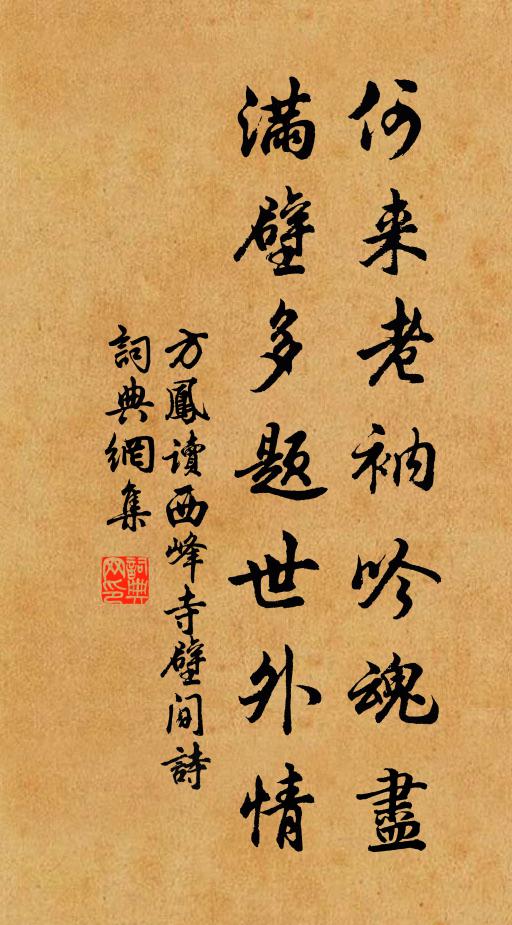 何来老衲吟魂盡
满壁多题世外情
方鳳讀西峰寺壁间詩
詞典網集
詞典
网印